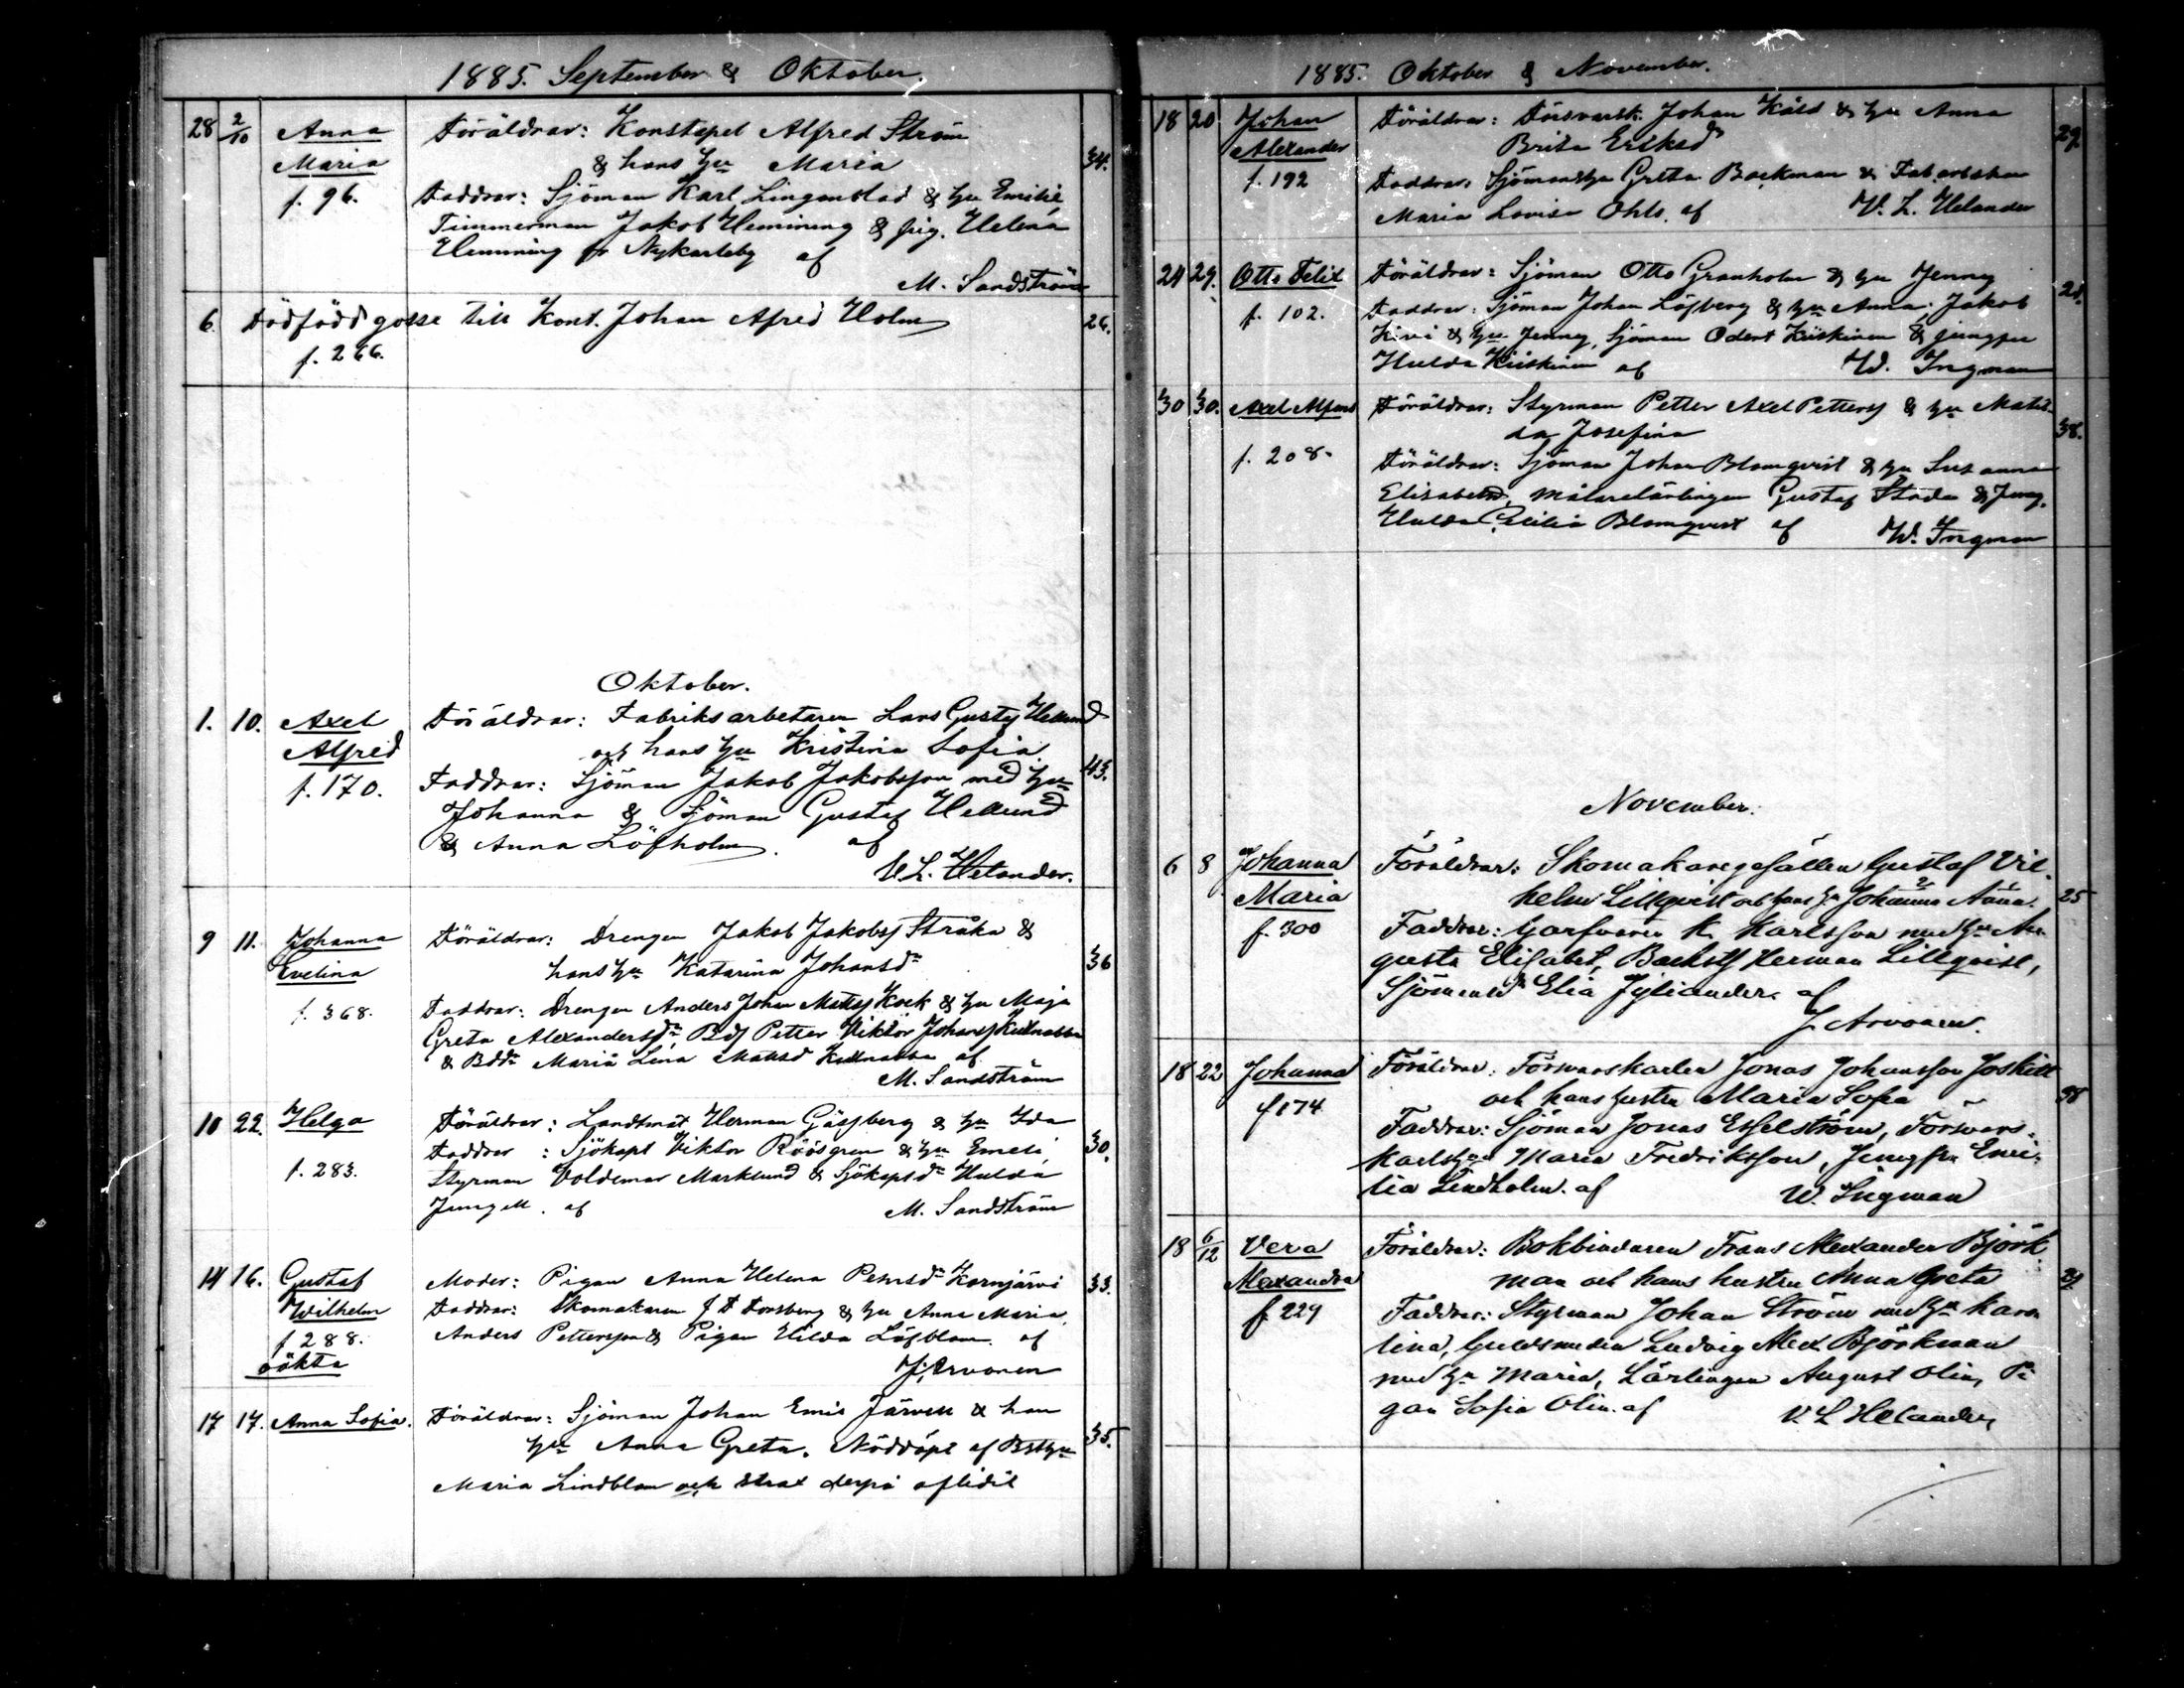 1885. September & Oktober.
28 2/10 Anna Föräldrar: Konstapel Alfred Ström
Maria & hans hu Maria 34.
f. 96. Faddrar: Sjöman Karl Lingonblad & hu Emilie,
Timmerman Jakob Hemming & pig. Helena
Hemming fr Nykarleby af
M. Sandström
6. Dödfödd gosse till Kont. Johan Afred Holm 26.
f. 266.
Oktober.
1. 10. Axel Föräldrar: Fabriksarbetaren Lars Gustaf Hellund
Alfred och hans hu Kristina Sofia.
f. 170. Faddrar: Sjöman Jakob Jakobsson med hu 43.
Johanna & Sjöman Gustaf Hellund
& Anna Löfholm. af
V. L. Helander.
9 11. Johanna Föräldrar: Drengen Jakob Jakobss Stråka &
Evelina hans hu Katarina Johansdr 36
f. 368. Faddrar: Drengen Anders Johan Matts Kock & hu Maja
Greta Alexandersdr, Bds Petter Viktor Johans Kullnabba
& Bddr Maria Lena Mattsd Kullnabba af
M. Sandström
10 22. Helga Föräldrar: Landtmät Herman Gässberg & hu Ida
Faddrar: Sjökapt Viktor Röösgren & hu Emeli, 30.
f. 283. Styrman Voldemar Marklund & Sjökapsdr Hulda
Jungell. af M. Sandström
14 16. Gustaf Moder: Pigan Anna Helena Petersdr Kornjärvi 33.
Wilhelm Faddrar: Skomakaren J F Forsberg & hu Anna Maria,
f 288. Anders Pettersson & Pigan Hilda Löfblom. af
oökta J. Arvonen
17 17. Anna Sofia. Föräldrar: Sjöman Johan Emil Järvell & han
hu Anna Greta. Nöddöpt af Bsthu 35.
Maria Lindblom och strax derpå aflidit
1885. Oktober & November.
18 20 Johan Föräldrar: Försvarsk. Johan Käld & hu Anna
Alexander Brita Eriksd 29.
f. 192 Faddrar: Sjömanshu Greta Backman & Fab.arbetar
Maria Lovisa Ohls. af V. L. Helander
24 29. Otto Felix Föräldrar: Sjöman Otto Granholm & hu Jenny 21.
f. 102. Faddrar: Sjöman Johan Löfberg & hu Anna, Jakob
Kivi & hu Jenny, Sjöman Odert Kiiskinen & jungfru
Hulda Kiiskinen af W. Ingman
30 30. Axel Alfons Föräldrar: Styrman Petter Axel Petterss & hu Matil-
da Josefina 38.
f. 208. Föräldrar: Sjöman Johan Blomqvist & hu Susanna
Elisabeth, målarelärlingen Gustaf Stada & Jung.
Hulda Cecilia Blomqvist af W. Ingman
November.
6 8 Johanna Föräldrar: Skomakaregesällen Gustaf Vil-
Maria helm Lillqvist och hans hu Johanna Anna. 25
f. 300 Faddrar: Garfvaren K. Karlsson med hu Au-
gusta Elisabet, Backsts Herman Lillqvist,
Sjömansdr Elia Jyliander. af
J. Arvonen.
18 22 Johanna Föräldrar: Försvarskarlen Jonas Johansson Joskitt
f 174 och hans hustru Maria Sofia 38
Faddrar: Sjöman Jonas Esselström, Försvars-
karlshu Maria Fredriksson, Jungfru Emi-
lia Lindholm. af W. Ingman
18 6/12 Vera Föräldrar: Bokbindaren Frans Alexander Björk-
Alexandra man och hans hustru Anna Greta 29
f. 229 Faddrar: Styrman Johan Ström med hu Karo-
lina, Guldsmeden Ludvig Alex Björkman
med hu Maria, Lärlingen August Olin, Pi-
gan Sofia Olin. af V L Helander